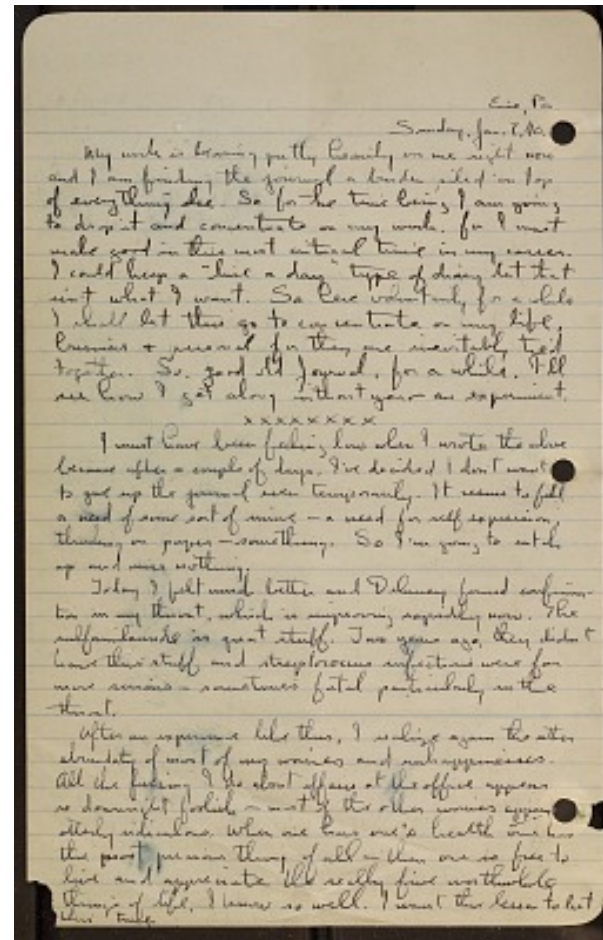 Erie, Pa
Sunday, Jan. 7, 40.
My work is bearing pretty heavily on me right now
and I am finding the journal a burden piled on top
of everything else. So for the time being I am going
to drop it and concentrate on my work, for I must
make good in this most critical time in my career.
I could keep a "line a day" type of diary but that
isn't what I want. So here voluntarily for a while
I shall let this go to concentrate on my life,
business + personal for they are inevitably tied
together. So, good old Journal, for a while. I'll
see how I get along without you - an experiment.
x x x x x x x x
I must have been feeling low when I wrote the above
because after a couple of days, I've decided I don't want
to give up the journal even temporarily. It seems to fill
a need of some sort of mine - a need for self expression,
thinking on paper - something. So I'm going to catch
up and miss nothing.
Today I felt much better and Delaney found
in my throat, which is improving rapidly now. The
sulfanilamide is great stuff. Two years ago, they didn't
have this stuff and streptococcus infections were far
more serious - sometimes fatal particularly in the
throat.
After an experience like this, I realize again the utter
absurdity of most of my worries and unhappinesses.
All the fussing I do about affairs at the office appears
so downright foolish - most of the other worries appear
utterly ridiculous. When one has one's health one has
the most precious thing of all - then one is free to
live and appreciate the really fine worthwhile
things of life, I know so well. I want this lesson to last
this time